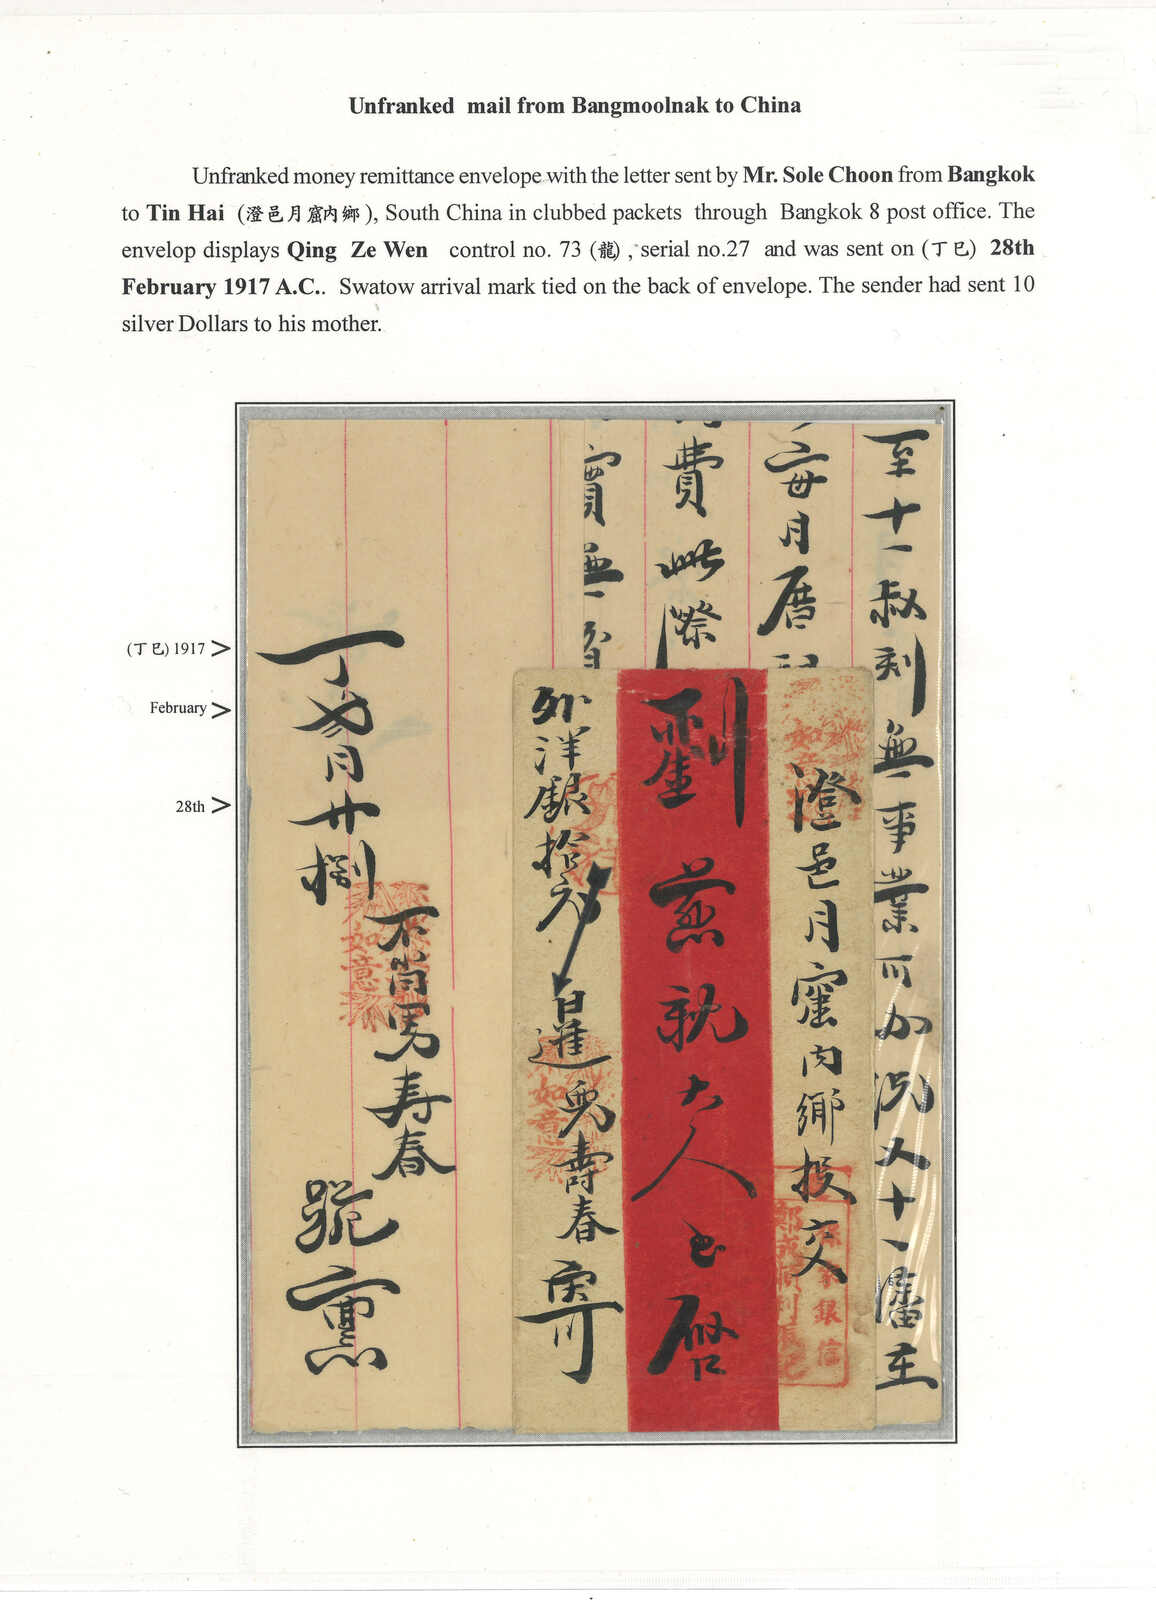 Unfranked mail from Bangmoolnak to China
Unfranked money remittance envelope with the letter sent by Mr. Sole Choon from Bangkok
to Tin Hai (澄邑月窟內鄉), South China in clubbed packets through Bangkok 8 post office. The
envelop displays Qing Ze Wen control no. 73 (龍), serial no.27 and was sent on (丁巳) 28th
February 1917 A.C.. Swatow arrival mark tied on the back of envelope. The sender had sent 10
silver Dollars to his mother.
(丁巳) 1917 >
February >
28th >
至十一叔刻無事業可
每月
費此際
無
澄邑月窟內鄉投交
劉
慈親大人玉啓
外洋銀拾元
暹兒壽春寄
丁
月廿捌
不肖男寿春
禀
如意
如意
銀信